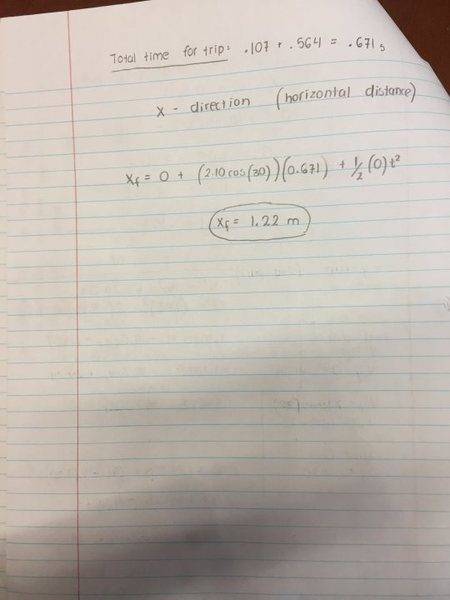 Total time for trip: .107 + .564 = .671 s
x - direction (horizontal distance)
xf = 0 + (2.10 cos(30))(0.671) + 1/2 (0)t²
xf = 1.22 m